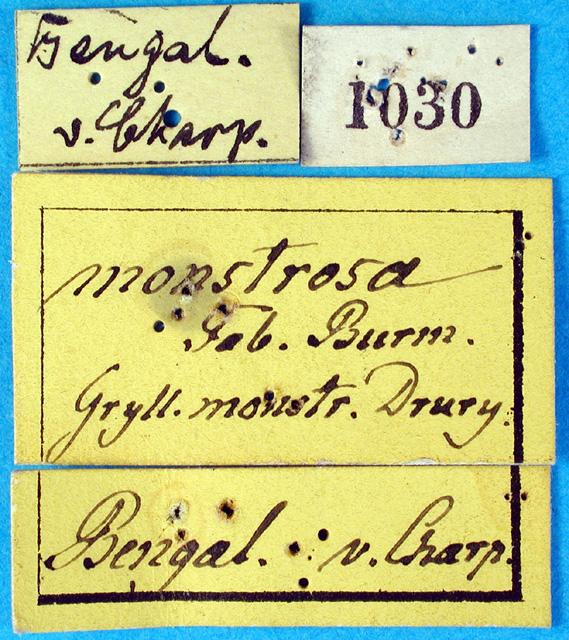 Bengal.
v. Charp.
1030
monstrosa
Fab. Burm.
Gryll. monstr. Drury.
Bengal. v. Charp.